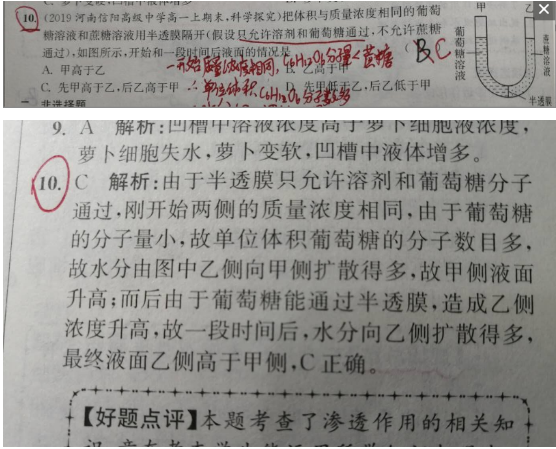 10. (2019 河南信阳高级中学高一上期末,科学探究)把体积与质量浓度相同的葡萄
糖溶液和蔗糖溶液用半透膜隔开(假设只允许溶剂和葡萄糖通过,不允许蔗糖
通过),如图所示,开始和一段时间后液面的情况是 ( )
BC
A. 甲高于乙
B. 乙高于甲
C. 先甲高于乙,后乙高于甲
D. 先甲低于乙,后乙低于甲
一开始质量浓度相同, C6H12O6分子量<蔗糖
∴单位体积C6H12O6分子数多
甲 乙
葡萄糖溶液
蔗糖溶液
半透膜
9. A 解析:凹槽中溶液浓度高于萝卜细胞液浓度,
萝卜细胞失水,萝卜变软,凹槽中液体增多。
10. C 解析:由于半透膜只允许溶剂和葡萄糖分子
通过,刚开始两侧的质量浓度相同,由于葡萄糖
的分子量小,故单位体积葡萄糖的分子数目多,
故水分由图中乙侧向甲侧扩散得多,故甲侧液面
升高;而后由于葡萄糖能通过半透膜,造成乙侧
浓度升高,故一段时间后,水分向乙侧扩散得多,
最终液面乙侧高于甲侧,C 正确。
【好题点评】本题考查了渗透作用的相关知